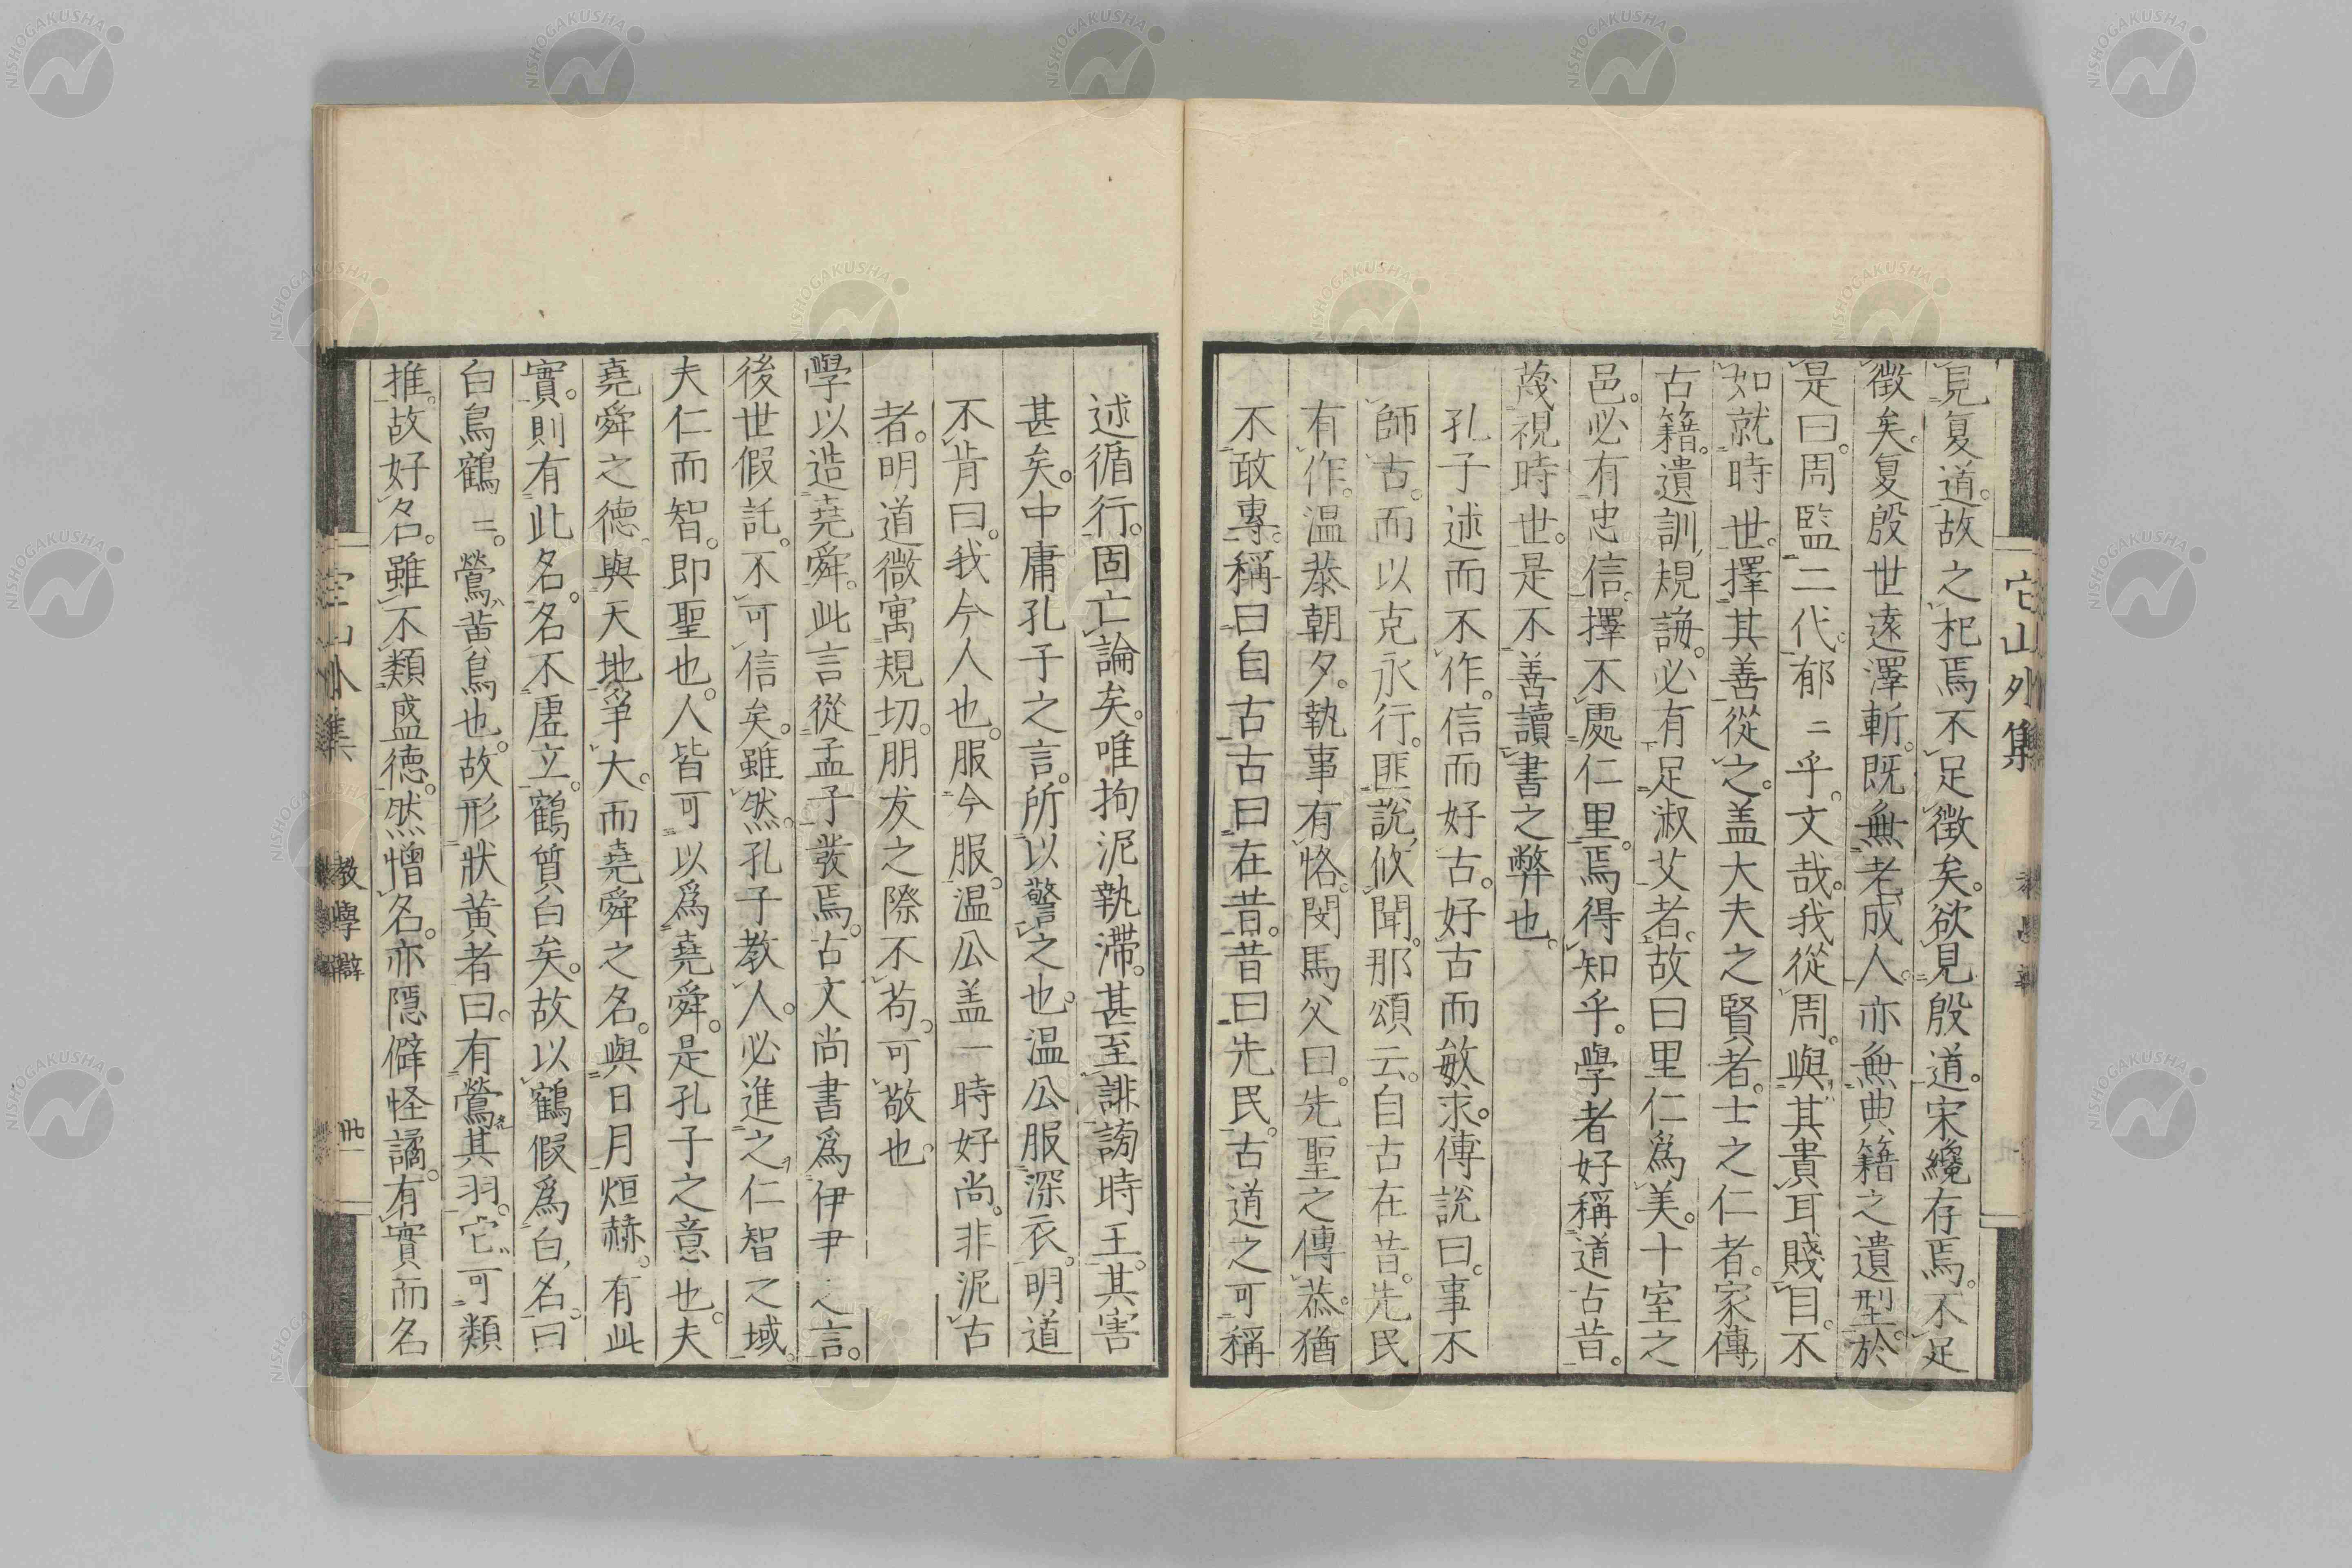 見夏道。故之杞焉不足徴矣。欲見殷道。宋纔存焉。不足
徴矣。夏殷世遠澤斬。既無老成人。亦無典籍之遺型。於
是曰。周監二代。郁〻乎。文哉。我從周。與其貴耳賤目。不
如就時世。擇其善從之。盖大夫之賢者。士之仁者。家傳
古籍。遺訓規誨。必有足淑艾者。故曰里仁爲美。十室之
邑。必有忠信。擇不處仁里。焉得知乎。學者好稱道古昔。
蔑視時世。是不善讀書之弊也。
孔子述而不作。信而好古。好古而敏求。傳說曰。事不
師古。而以克永行。匪說攸聞。那頌云。自古在昔。先民
有作。温恭朝夕。執事有恪。閔馬父曰。先聖之傳恭。猶
不敢專。稱曰自古。古曰在昔。昔曰先民。古道之可稱
述循行。固亡論矣。唯拘泥執滯。甚至誹謗時王。其害
甚矣。中庸孔子之言。所以警之也。温公服深衣。明道
不肯曰。我今人也。服今服。温公盖一時好尚。非泥古
者。明道微寓規切。朋友之際不苟。可敬也。
學以造堯舜。此言從孟子發焉。古文尚書爲伊尹之言。
後世假託。不可信矣。雖然。孔子教人。必進之仁智之域。
夫仁而智。即聖也。人皆可以爲堯舜。是孔子之意也。夫
堯舜之德與天地爭大。而堯舜之名。與日月烜赫。有此
實。則有此名。名不虚立。鶴質白矣。故以鶴假爲白名。曰
白鳥鶴〻。鶯黄鳥也。故形狀黄者曰。有鶯其羽。它可類
推。故好名。雖不類盛德。然憎名。亦隱僻怪譎。有實而名
它山外集
教學辥
它山外集